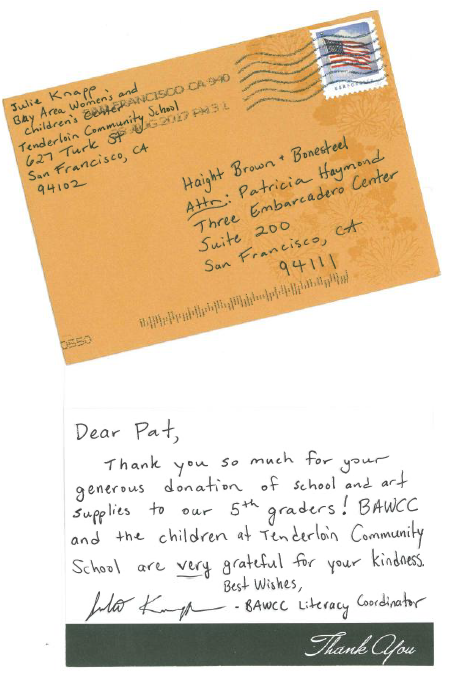 Julie Knapp
Bay Area Women's and
Children's Center
Tenderloin Community School
627 Turk St
San Francisco, CA
94102
SAN FRANCISCO CA 940
AUG 2017 PM 3 L
Haight Brown + Bonesteel
Attn: Patricia Haymond
Three Embarcadero Center
Suite 200
San Francisco, CA
94111
0550
Dear Pat,
Thank you so much for your
generous donation of school and art
supplies to our 5th graders! BAWCC
and the children at Tenderloin Community
School are very grateful for your kindness.
Best Wishes,
Julie Knapp - BAWCC Literacy Coordinator
Thank You